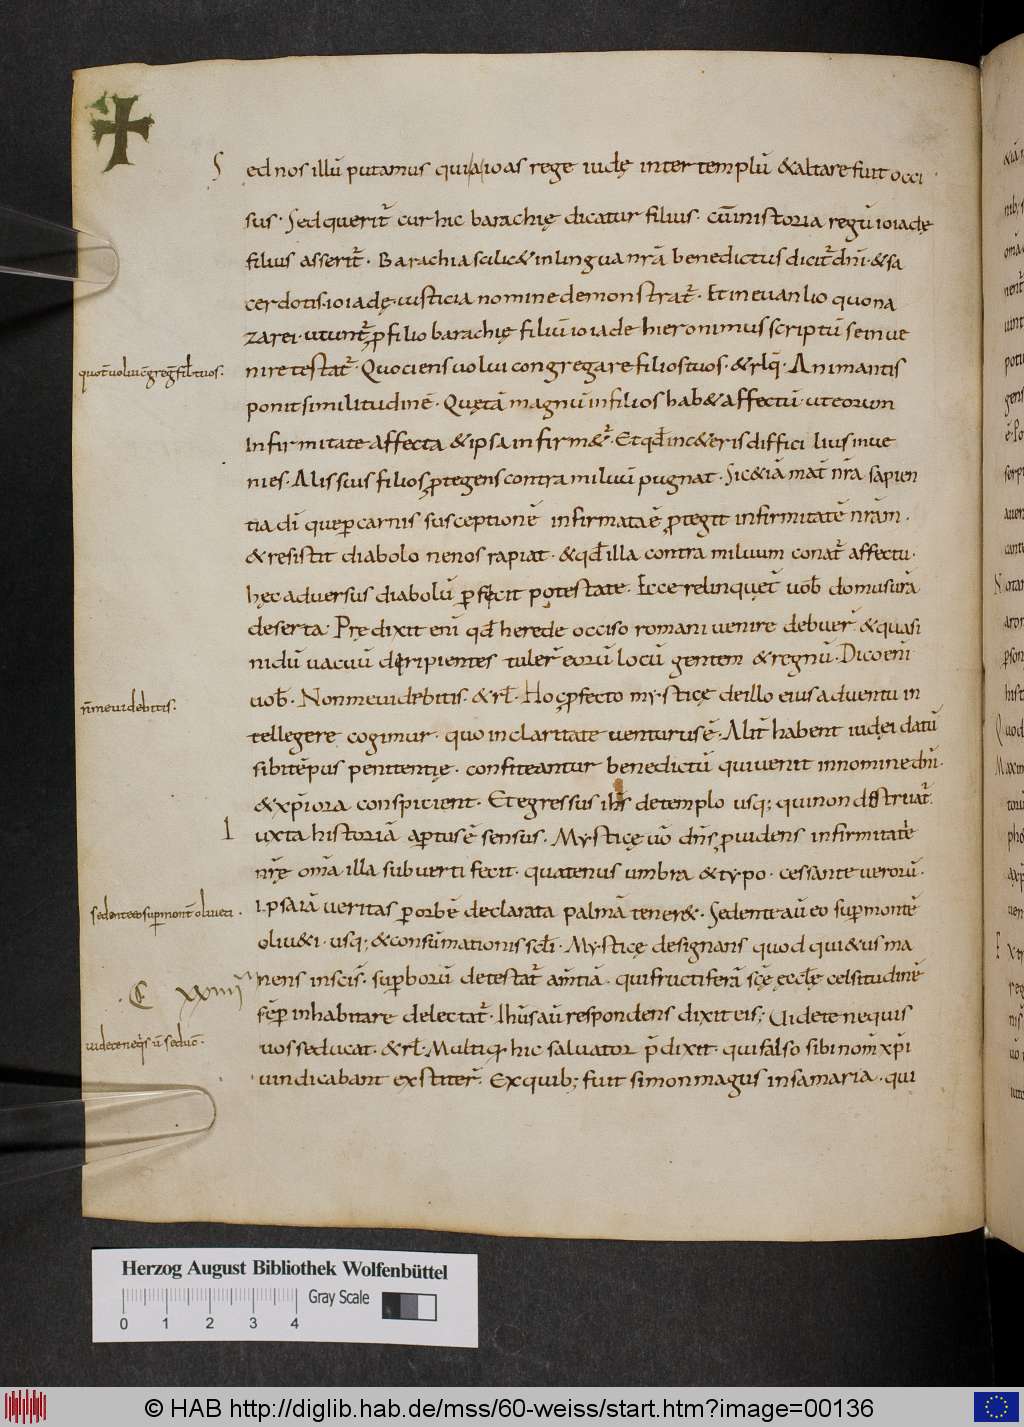 Sed nos illū putamus qui/a/ ioas rege iudę inter templū & altare fuit occi
sus · Sed querit᷑ cur hic barachię dicatur filius · cū in istoria regū ioiadę
filius asserit᷑ · Barachia scilic& in lingua nr̄a benedictus dicit᷑ dn̄i · & sa
cerdotis · ioiadę · iusticia nomine demonstrat᷑ · Et in euanlio quo na
zarei · utunt᷑ ꝓ filio barachię filiū ioiade hieronimus scriptū se inue
quot̄ uolui c̄greḡ fil̄ tuos ·
nire testat᷑ · Quociens uolui congregare filios tuos · & rlq̄ · Animantis
ponit similitudinē · Quę tā magnū in filios hab& affectū · ut eorum
infirmitate affecta & ipsa infirm&᷑ · Et qd̄ in c&eris difficilius inue
nies · Alis suis filios ꝓtegens contra miluū pugnat · Sic &iā mat̄ nr̄a sapien
tia dī que ꝑ carnis susceptionē infirmata ē ꝓtegit infirmitatē nr̄am ·
& resistit diabolo ne nos rapiat · & qd̄ illa contra miluum conat᷑ affectu ·
hęc aduersus diabolū ꝑfecit potestate · Ecce relinquet᷑ uob̄ domus ur̄a
deserta · Prędixit enī qd̄ herede occiso romani uenire debuer̄ & quasi
nidū uacuū diripientes tuler̄ eorū locū gentem & regnū · Dico enī
n̄ me uidebitis ·
uob̄ · Non me uidebitis · & rl̄ · Hoc ꝓfecto mysticę de illo eius aduentu in
tellegere cogimur · quo in claritate uenturus ē · Alit̄ habent iudei datū
sibi tēpus penitentię · confiteantur benedictū qui uenit in nomine dn̄i ·
& xp̄i ora conspicient · Et egressus ih̄s de templo usq; qui non destruat᷑ ·
Iuxta historiā aꝑtus ē sensus · Mysticę uō dn̄s ꝓuidens infirmitatē
nr̄ę om̄a illa subuerti fecit · quatenus umbra & typo · cessante ueroru ·
sedente eo suꝑ mont̄ oliueti ·
ipsarā ueritas ꝑ orbē declarata palmā tener& · Sedente aū eo suꝑ montē
oliu&i · usq; & consūmationis scl̄i · Mysticę designans quod qui &us ma
C̄ xxiiii
nens in scīs · suꝑborū detestat᷑ am̄tiā · qui fructiferā scę̄ eccl̄ę celsitudinē
sēꝑ inhabitare delectat᷑ · Ihūs aū respondens dixit eis; Uidete ne quis
uidete neq̄s ū seduc̄ ·
uos seducat · & rl̄ · Multiq hic saluator p̄dixit · qui falso sibi nom̄ xp̄i
uindicabant exstiter̄ · Ex quib; fuit simon magus in samaria · qui
Herzog August Bibliothek Wolfenbüttel
Gray Scale
0 1 2 3 4
© HAB http://diglib.hab.de/mss/60-weiss/start.htm?image=00136